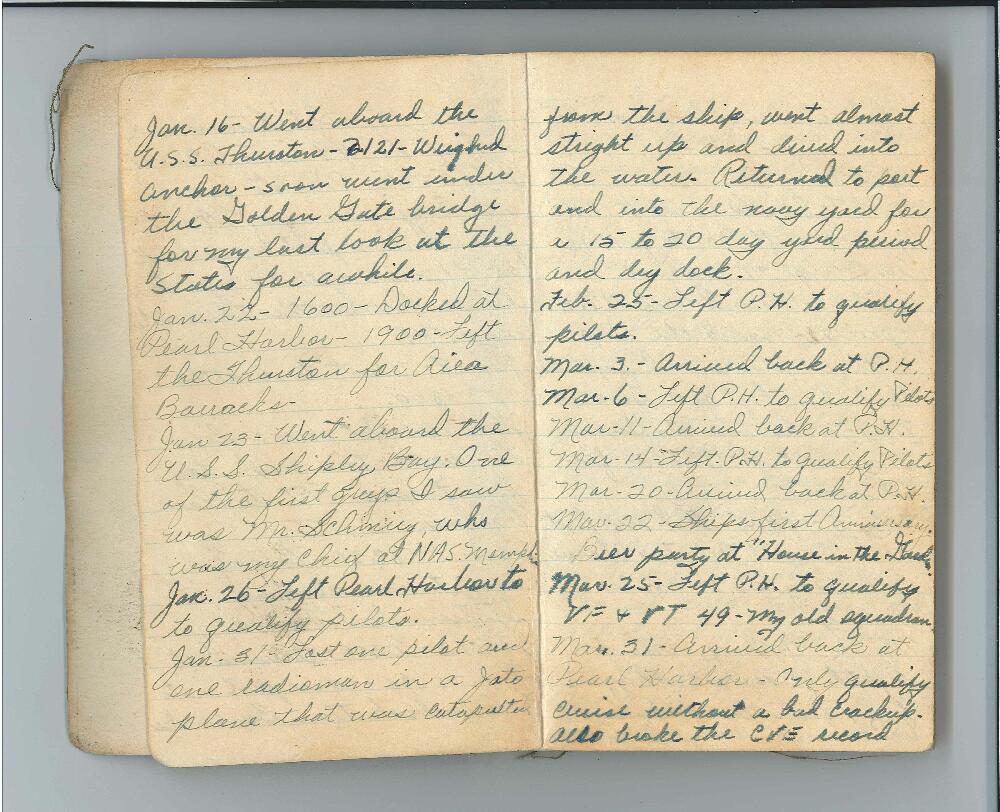 Jan. 16 - Went aboard the
U.S.S. Thurston - 2121 - Weighed
anchor - soon went under
the Golden Gate bridge
for my last look at the
States for awhile.
Jan. 22 - 1600 - Docked at
Pearl Harbor - 1900 - Left
the Thurston for Aiea
Barracks -
Jan 23 - Went aboard the
U.S.S. Shipley Bay. One
of the first guys I saw
was Mr. who
was my Chief at NAS. Memph.
Jan. 26 - Left Pearl Harbor to
to qualify pilots.
Jan. 31 - Lost one pilot and
one radioman in a Jato
plane that was catapulted
from the ship, went almost
stright up and dived into
the water. Returned to port
and into the navy yard for
a 15 to 20 day yard period
and dry dock.
Feb. 25 - Left P.H. to qualify
pilots.
Mar. 3. - Arrived back at P.H.
Mar. 6 - Left P.H. to qualify Pilots
Mar - 11 - Arrived back at P.H.
Mar - 14 - Left P.H. to qualify Pilots
Mar. 20 - Arrived back at P.H.
Mar. 22 - Ships first Anniversary.
Beer party at "House in the
Mar. 25 - Left P.H. to qualify
VF & VT 49 - My old squadron.
Mar. 31 - Arrived back at
Pearl Harbor - Only qualify
cruise without a bad crackup.
also broke the CVE record